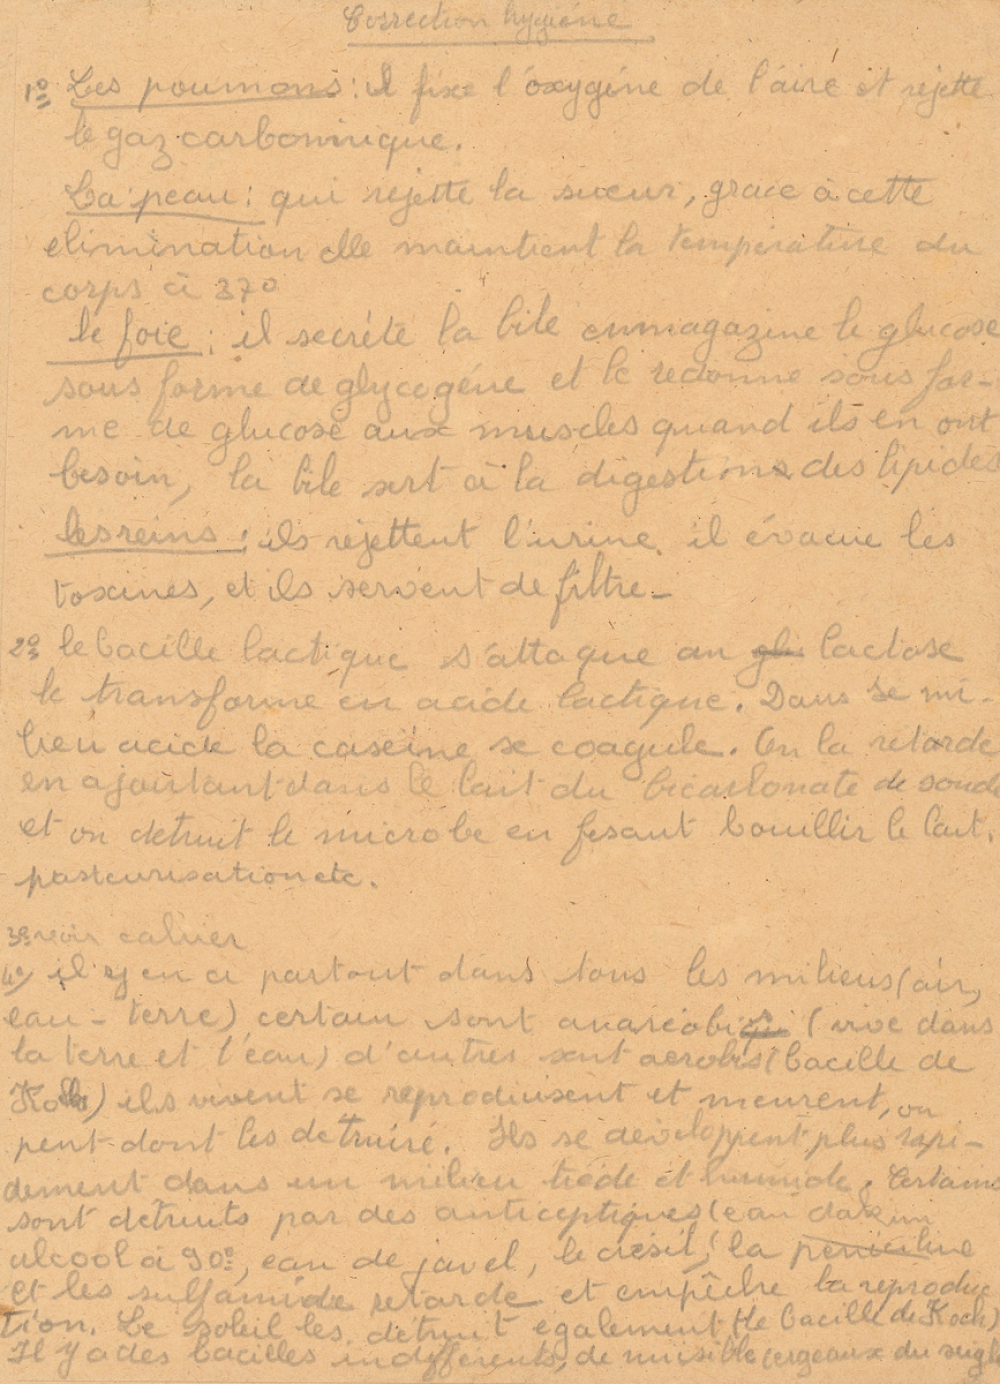 Correction hygiène
1º Les poumons : il fixe l'oxygéne de l'aire et rejette
le gaz carbonnique.
La peau : qui rejette la sueur, grace à cette
elimination elle maintient la température du
corps à 37º
le foie : il secréte la bile emmagazine le glucose
sous forme de glycogéne et le redonne sous for-
me de glucose aux muscles quand ils en ont
besoin, la bile sert à la digestions des lipides
les reins : ils rejettent l'urine. il évacue les
toxines, et ils servent de filtre -
2º le bacille lactique s'attaque au glu lactose
le transforme en acide lactique. Dans se mi-
lieu acide la caseine se coagule. On la retarde
en ajoutant dans le lait du bicarbonate de soude
et on detruit le microbe en fesant bouillir le lait.
pasteurisation etc.
3º voir cahier
4º il y en a partout dans tous les milieus (air,
eau - terre) certain sont anaréobi (vive dans
la terre et l'eau) d'autres sont aerobis (bacille de
Koch) ils vivent se reproduisent et meurent, on
peut dont les detruire. Ils se developpent plus rapi-
dement dans un milieu tiéde et humide. Certains
sont detruits par des anticeptiques (eau dakin
alcool à 90º, eau de javel, le crésil, (la peniciline
et les sulfamide retarde et empêche la reproduc
tion. Le soleil les détruit également (le bacille de Koch)
Il y a des bacilles indifférents, de nuisible (ergeaux du seigle